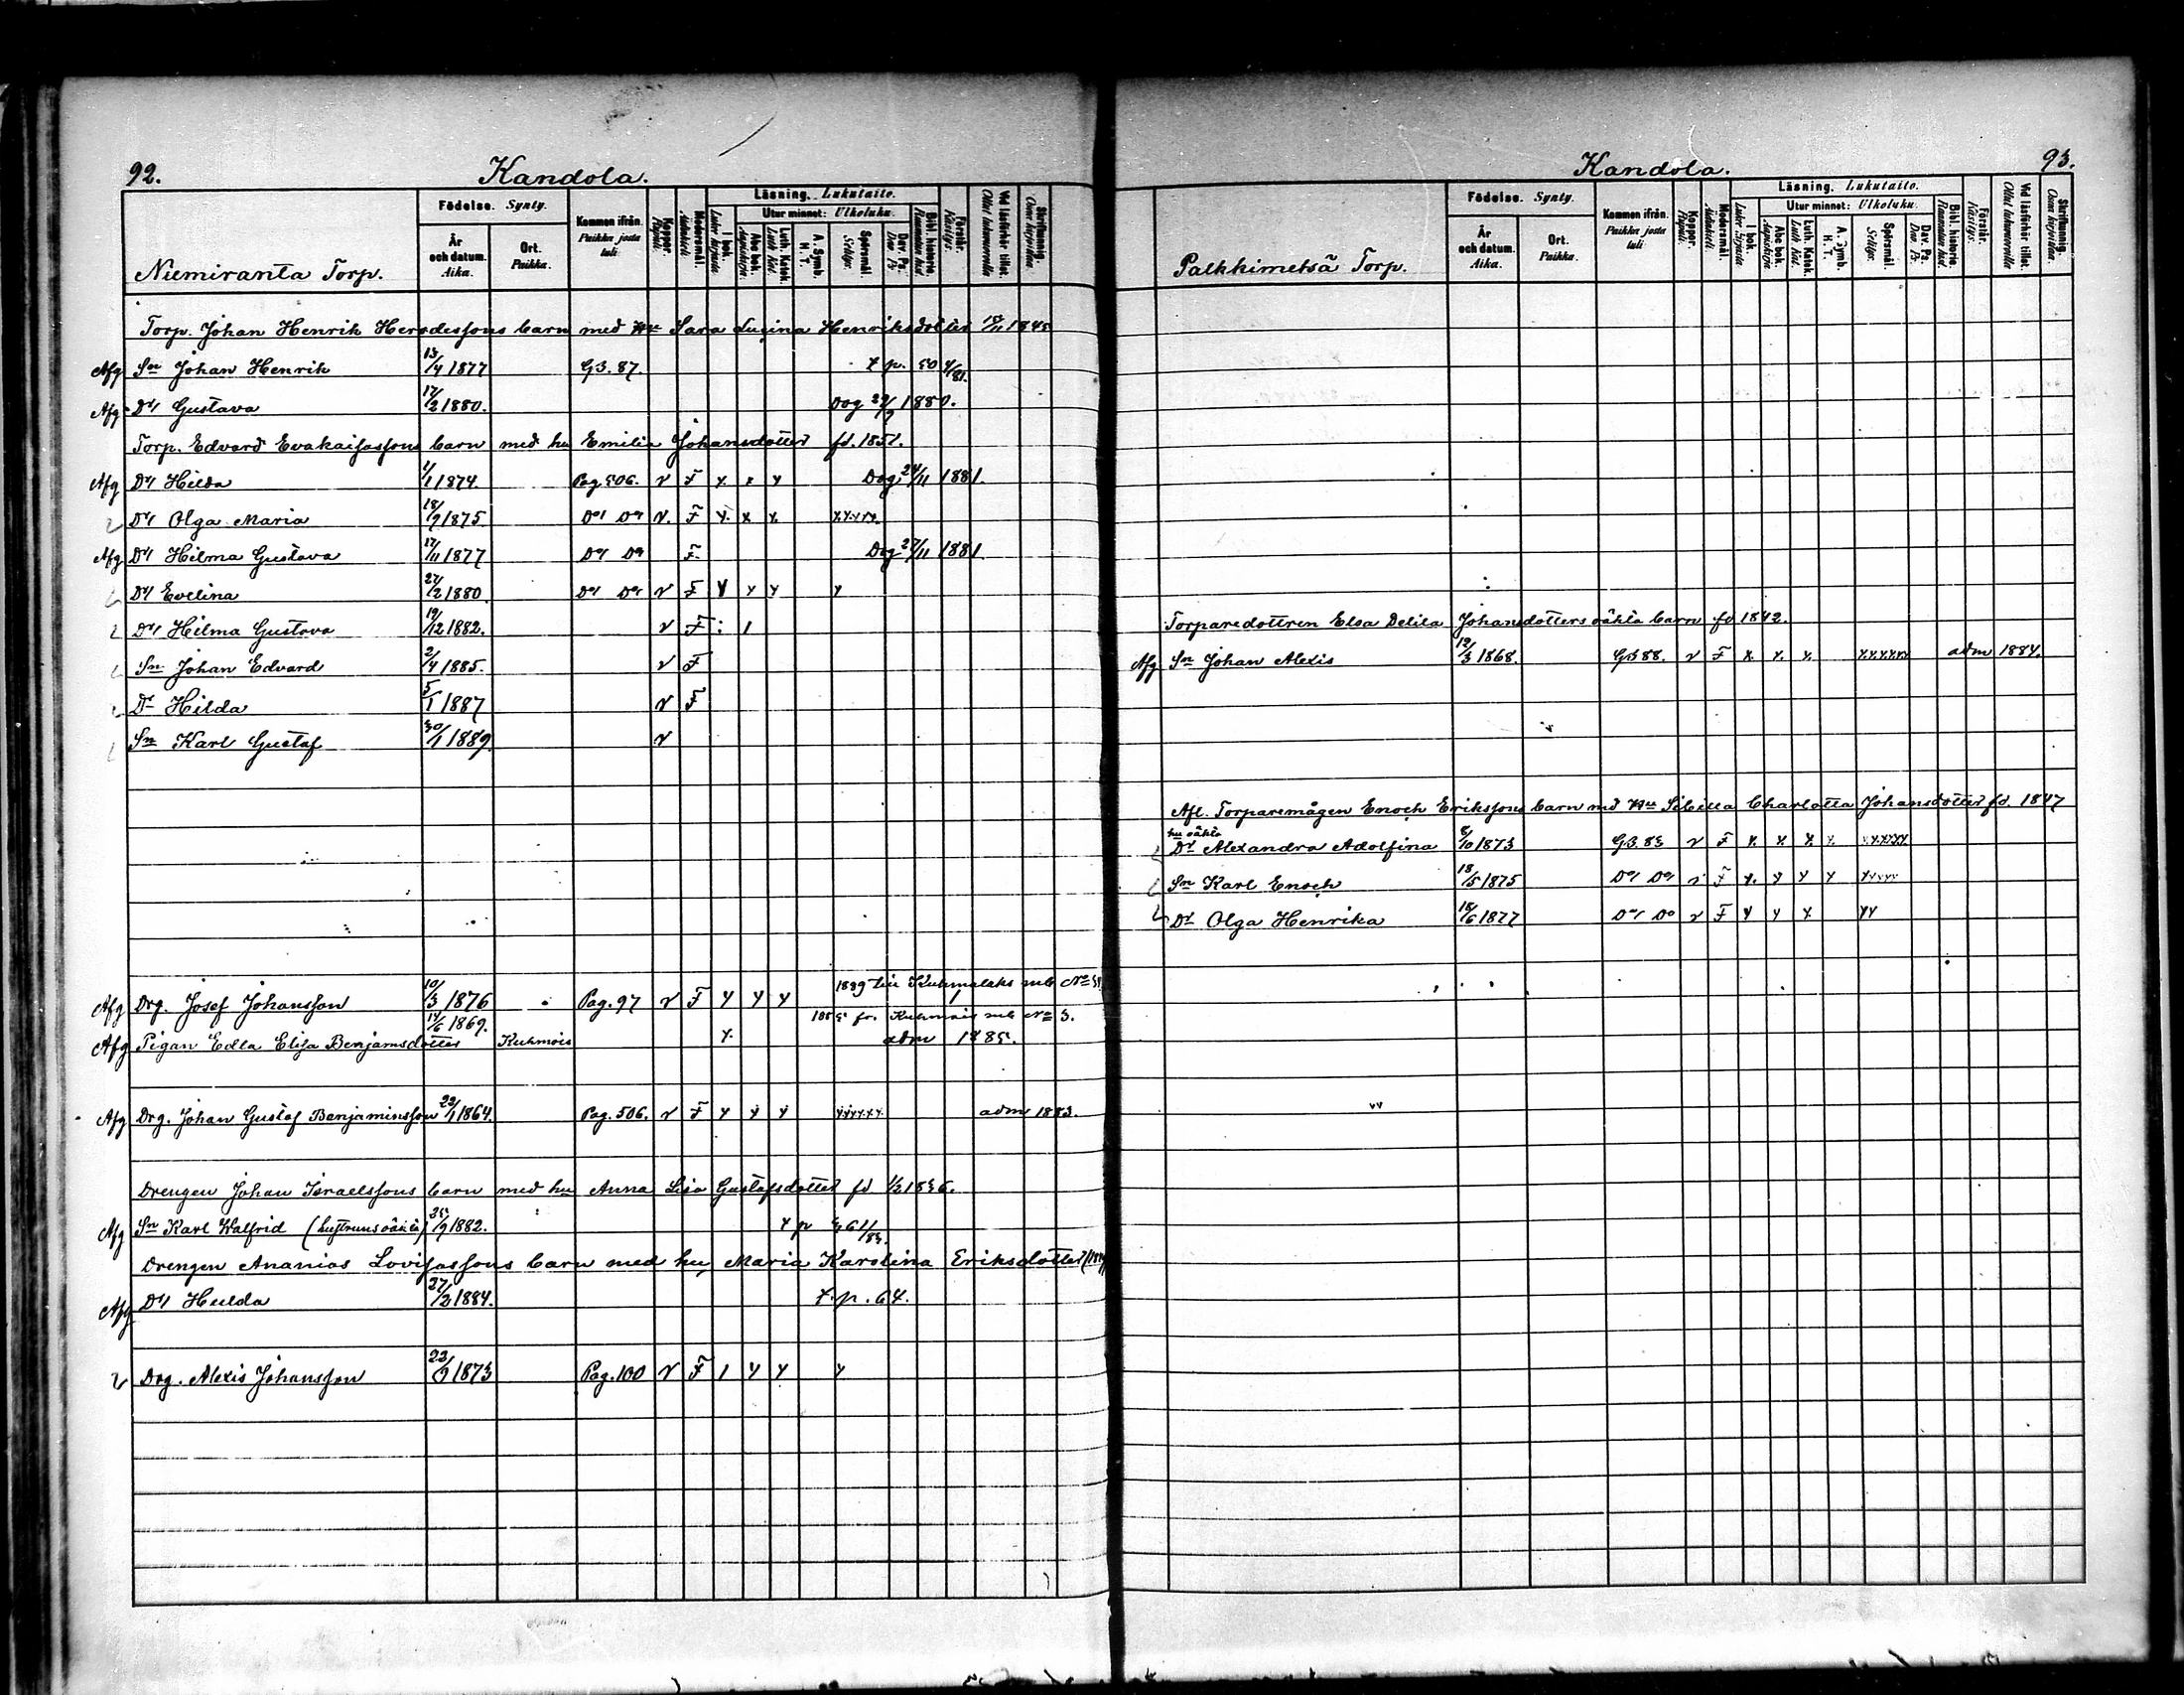 92.
Kandola.
Niemiranta Torp.
Födelse. Synty.
År och datum. Aika.
Ort. Paikka.
Kommen ifrån. Paikka josta tuli
Koppor. Rupuli.
Modersmål. Äidinkieli.
Läsning. Lukutaito.
I bok. Lukee kirjasta
Utur minnet: Ulkoluku.
Abc bok. Aapiskirja.
Luth. Katek. Luth. Kat.
A. Symb. H. T.
Spörsmål. Selitys.
Dav. Ps. Dav. Ps.
Bibl. historie. Raamatun hist.
Förstår. Käsitys.
Vid läsförhör tillst. Ollut lukuvuorolla
Skrifkunnig. Osaa kirjoittaa
Torp. Johan Henrik Herodessons barn med Hu Sara Lucina Henriksdotter
Afg Sn Johan Henrik 13/4 1877 GB. 87. t p. 50
Afg Dr Gustava 17/2 1880. Dog 1880.
Torp. Edvard Evakaisassons barn med hu Emilia Johansdotter fd. 1851.
Afg Dr Hilda 1/1 1874. Pag. 506. v F x x x Dog 24/11 1881.
Dr Olga Maria 18/9 1875 Do Do v. F x x x xxxxx
Afg Dr Hilma Gustava 17/11 1877 Do Do F Dog 27/11 1881
Dr Evelina 27/2 1880 Do Do v F x x x x
Dr Hilma Gustava 19/12 1882. v F : 1
Sn Johan Edvard 2/4 1885. v F
Dr Hilda 5/1 1887 v F
Sn Karl Gustaf 30/1 1889. v
1889 till Kuhmalaks
Afg Drg. Josef Johansson 10/3 1876 Pag. 97 v F x x x
fr. Kuhmois mb No 3.
Afg Pigan Edla Elisa Benjamsdotter 14/6 1869. Kuhmois x. adm 1885.
Afg Drg. Johan Gustaf Benjaminsson 22/1 1864. Pag. 506. v F x x x xxxxxx adm 1883.
Drengen Johan Israelssons barn med hu Anna Lisa Gustafsdotter fd 1/2 1836.
Afg Sn Karl Walfrid (hustruns oäkta) 1882.
Drengen Ananias Lovisassons barn med hu Maria Karolina Eriksdotter
Afg Dr Hulda 27/2 1884. t. p. 64.
Drg. Alexis Johansson 22/9 1873 Pag. 100 v F 1 x x x
Kandola.
93.
Palkkimetsä Torp.
Födelse. Synty.
År och datum. Aika.
Ort. Paikka.
Kommen ifrån. Paikka josta tuli.
Koppor. Rupuli.
Modersmål. Äidinkieli.
Läsning. Lukutaito.
I bok. Lukee kirjasta
Utur minnet: Ulkoluku.
Abc bok. Aapiskirja
Luth. Katek. Luth. Kat.
A. Symb. H. T.
Spörsmål. Selitys.
Dav. Ps. Dav. Ps.
Bibl. historie. Raamatun hist.
Förstår. Käsitys.
Vid läsförhör tillst. Ollut lukuvuorolla
Skrifkunnig. Osaa kirjoittaa.
Torparedottren Elsa Delila Johansdotters oäkta barn fd 1842.
Afg Sn Johan Alexis 12/3 1868. GB 88. v F x. x. x. xxxxxx adm 1884.
Afl. Torparemågen Enoch Erikssons barn md Hu Sibilla Charlotta Johansdotter fd. 1847
hu oäkta
Dr Alexandra Adolfina 8/10 1873 GB. 83 v F x. x x x. xxxxxx
Sn Karl Enoch 18/5 1875 Do Do v F x. x x x xxxxx
Dr Olga Henrika 18/6 1877 Do Do v F x x x xx